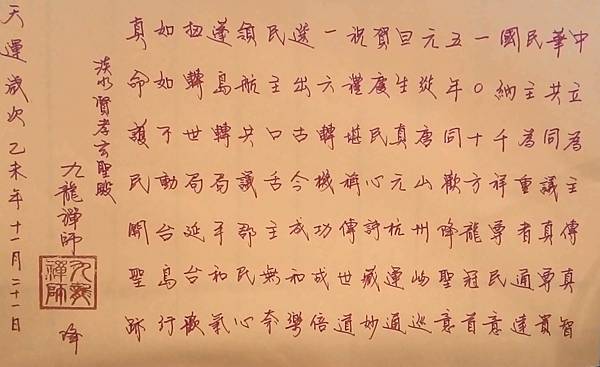 中立為主傳真智
華共同議真專貫
民主為重者通達
國納千祥尊民意
一○十方龍冠首
五年同歡降聖意
元從唐山州嶼巡
旦生真元杭運通
賀度民心許藏妙
祝禮堪稱傳世道
一六轉機功成倍
選出古今成和學
民主口舌主無奈
領航共議郡民心
蓬島轉局平和氣
扭轉世局延台歡
如如不動台島行
真命護民開聖跡
淡水賢孝玄聖殿
九龍禪師 降
九龍禪師
天運歲次乙未年十一月二十一日